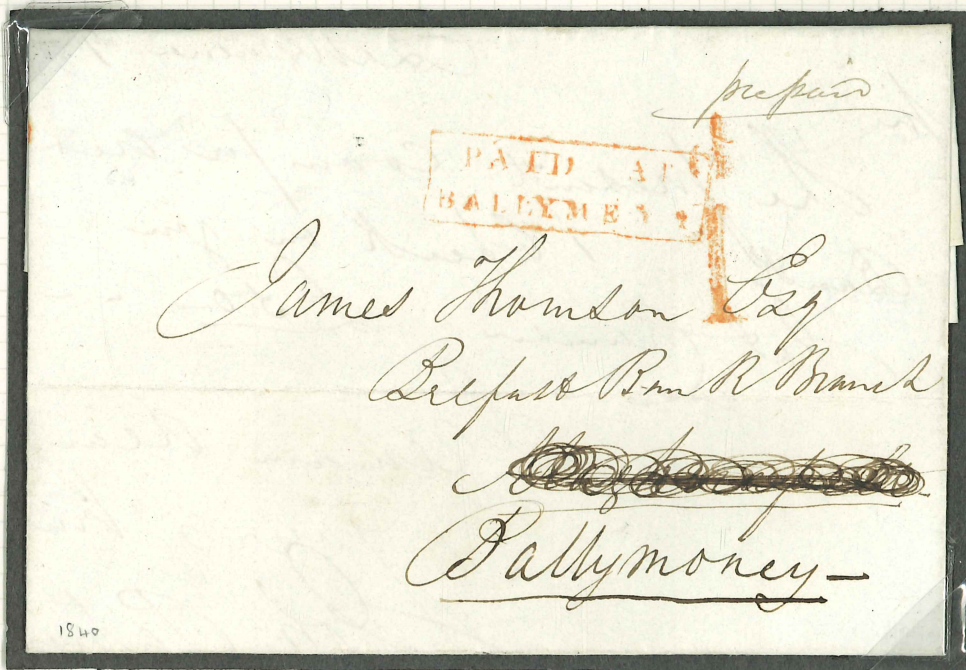 prepaid
PAID AT
BALLYMENA
1
James Thomson Esq
Belfast Bank Branch
Ballymoney
1840